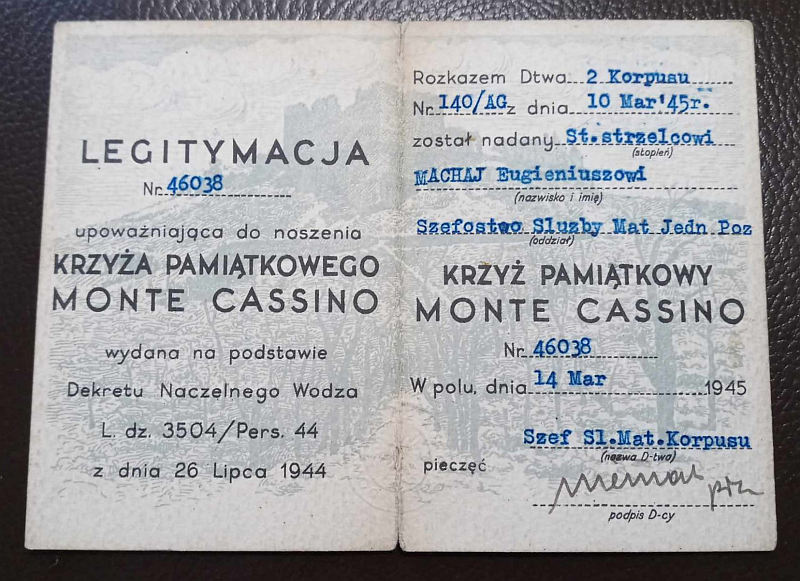 LEGITYMACJA
Nr. 46038
upoważniająca do noszenia
KRZYŻA PAMIĄTKOWEGO
MONTE CASSINO
wydana na podstawie
Dekretu Naczelnego Wodza
L. dz. 3504/Pers. 44
z dnia 26 Lipca 1944
Rozkazem Dtwa 2 Korpusu
Nr 140/AG z dnia 10 Mar'45r.
został nadany St.strzelcowi
(stopień)
MACHAJ Eugieniuszowi
(nazwisko i imię)
Szefostwo Sluzby Mat Jedn Poz
(oddział)
KRZYŻ PAMIĄTKOWY
MONTE CASSINO
Nr. 46038
W polu, dnia 14 Mar 1945
Szef Sl.Mat.Korpusu
(nazwa D-twa)
pieczęć
podpis D-cy